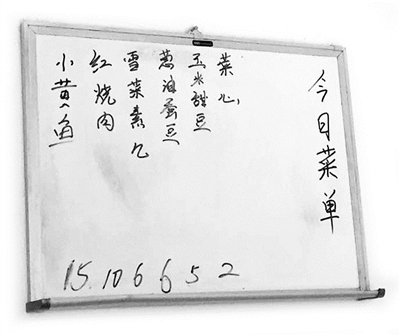 今日菜单
菜心
玉米甜豆
葱油蚕豆
雪菜素几
红烧肉
小黄鱼
15. 10 6 6 5 2